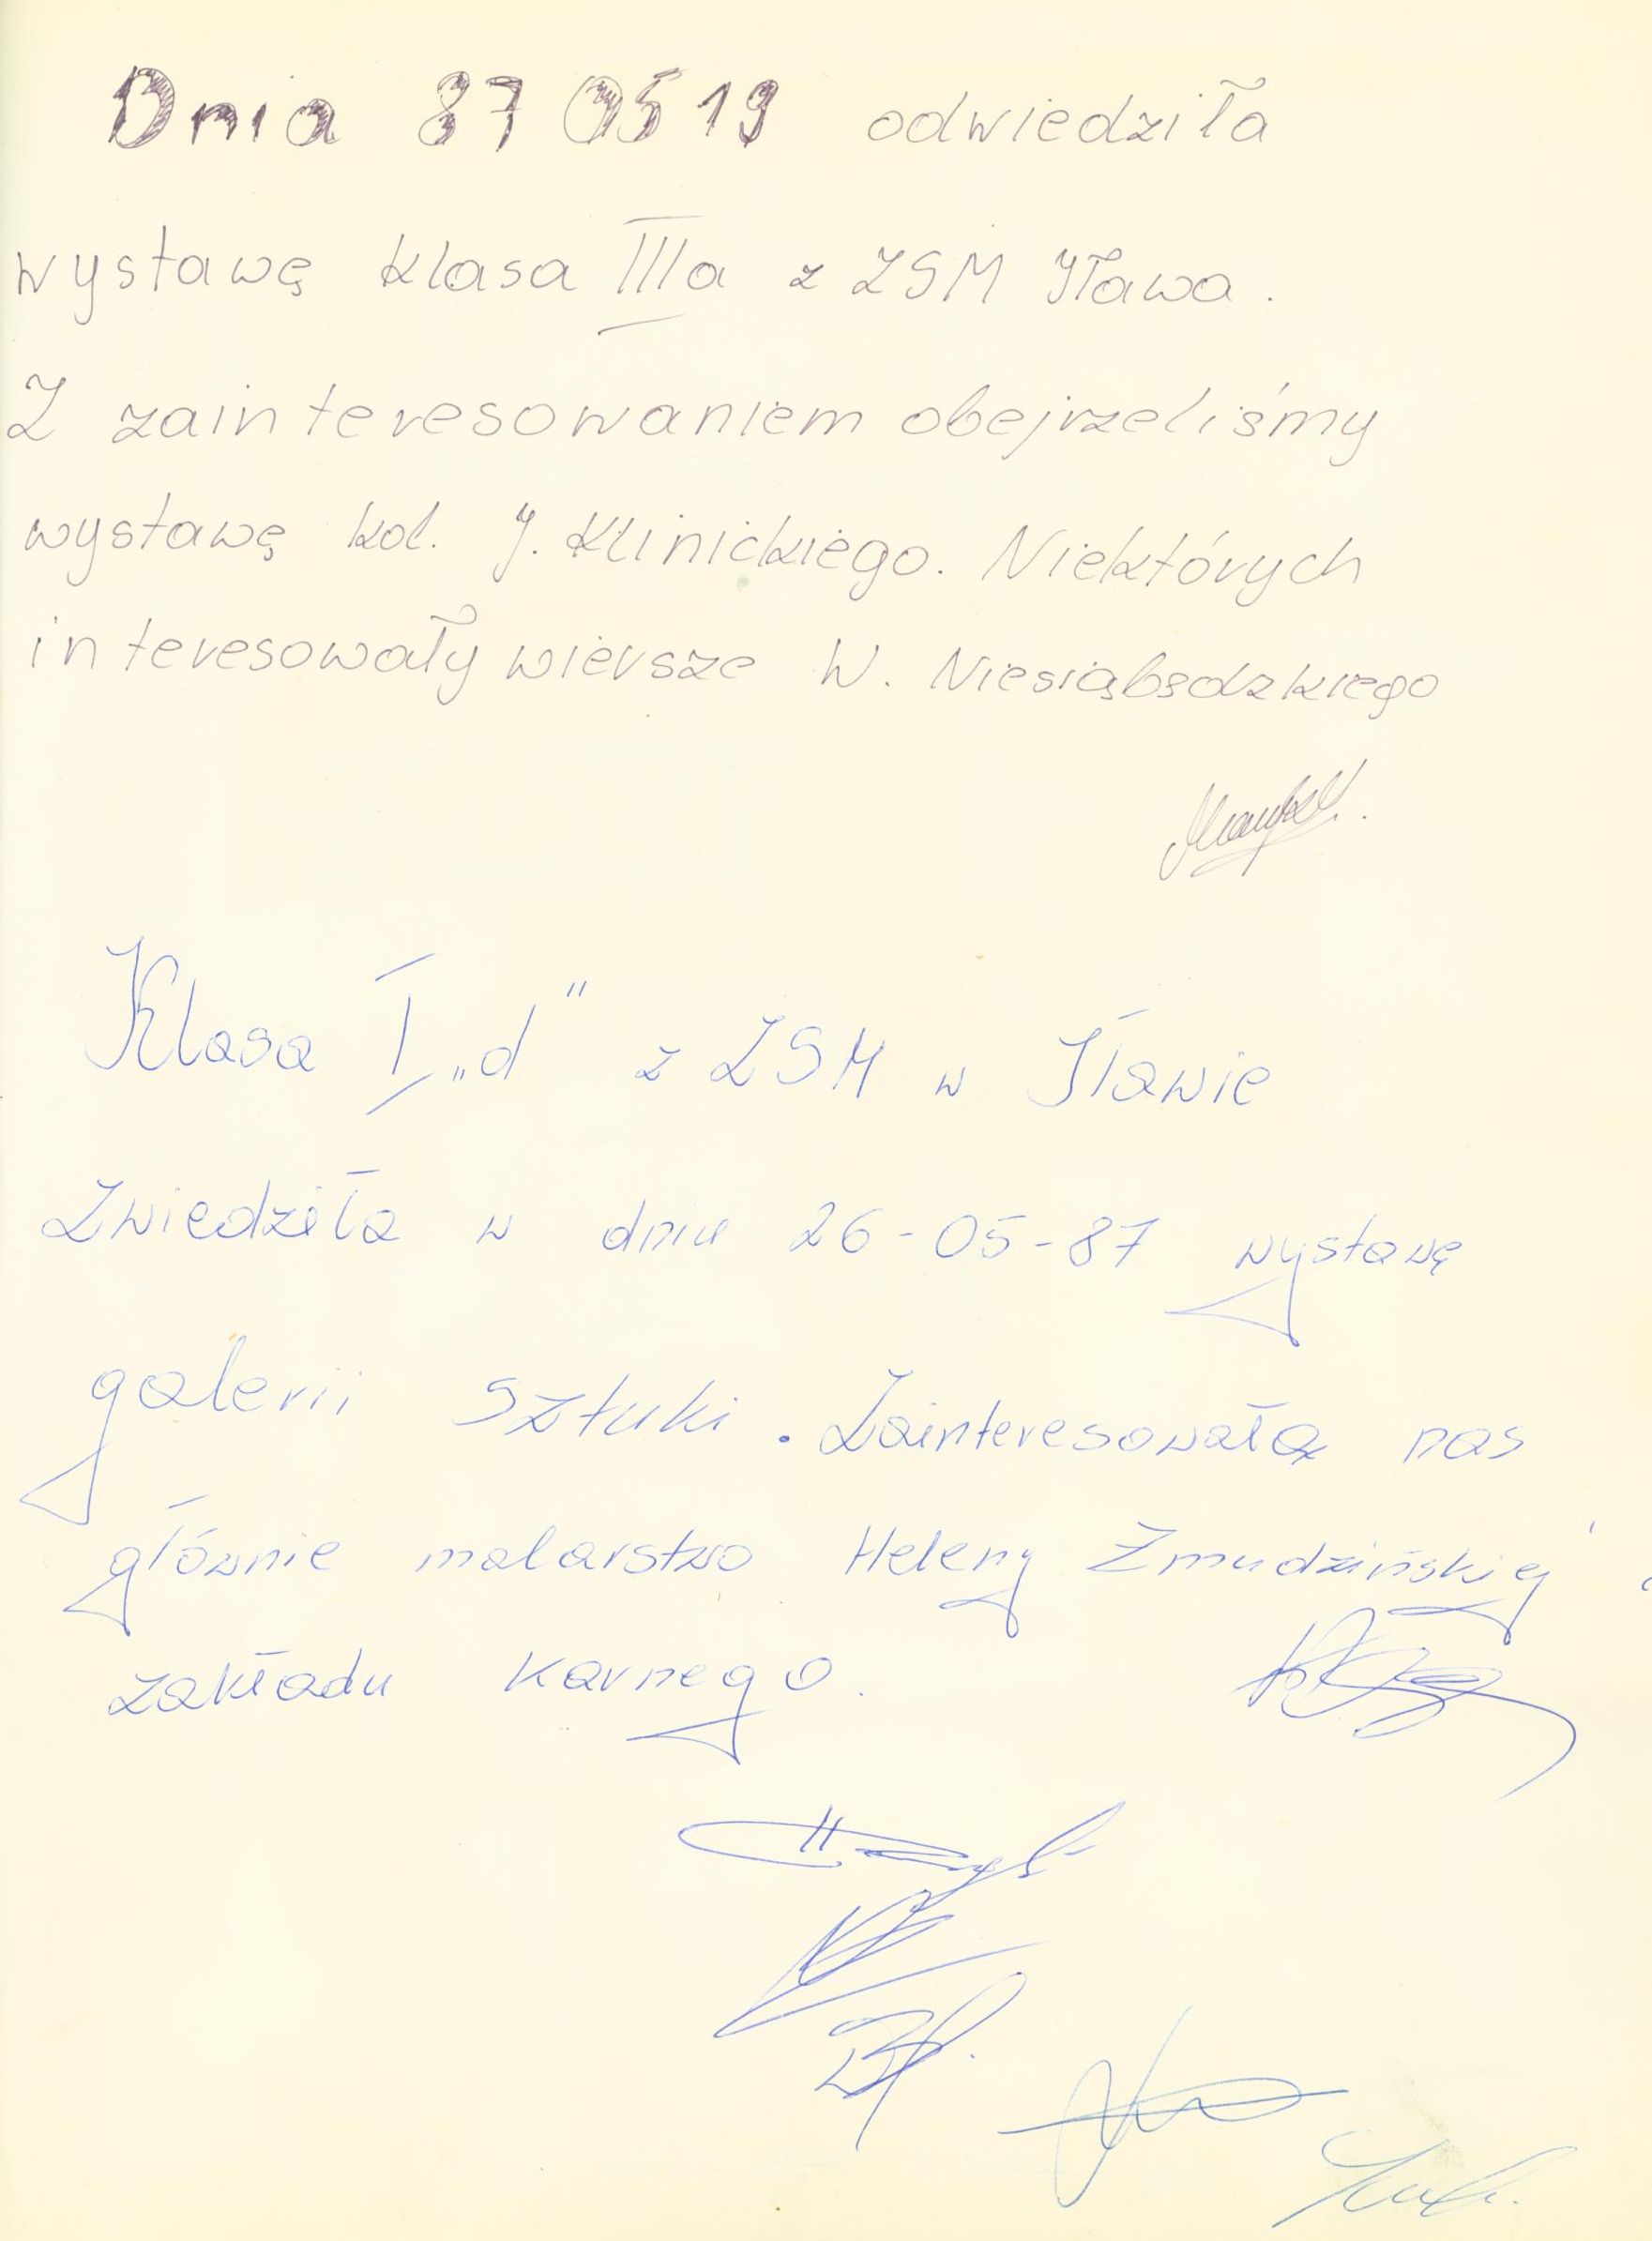 Dnia 87 05 19 odwiedziła
wystawę klasa IIIa z ZSM Iława.
Z zainteresowaniem obejrzeliśmy
wystawę kol. J. Klinickiego. Niektórych
interesowały wiersze W. Niesiąbędzkiego
Klasa I „d" z ZSM w Iławie
Zwiedziła w dniu 26-05-87 wystawę
galerii sztuki. Zainteresowała nas
głównie malarstwo Heleny Żmudzińskiej
zakładu karnego.